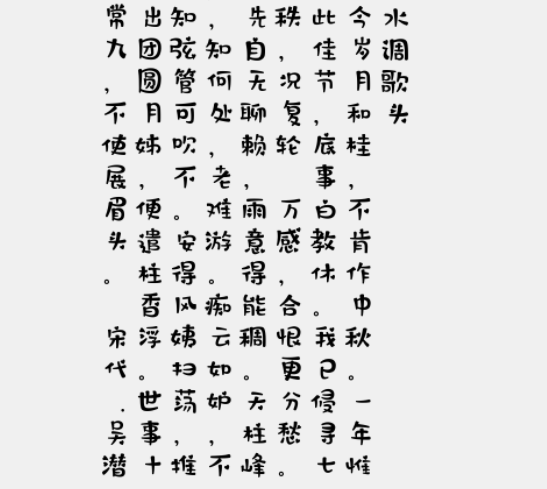 水调歌头
今岁月和桂,不肯作中秋。一年惟
此佳节,底事白教休。我已侵寻七
秩,况复轮 万感,合恨更分愁。
先自无聊赖,雨意得能稠。天柱峰
,知何处,老难游。痴云如妒,不
知弦管可吹不。安得风姨扫荡,推
出团圆月姊,便遣桂香浮。世事十
常九,不使展眉头。 宋代.吴潜